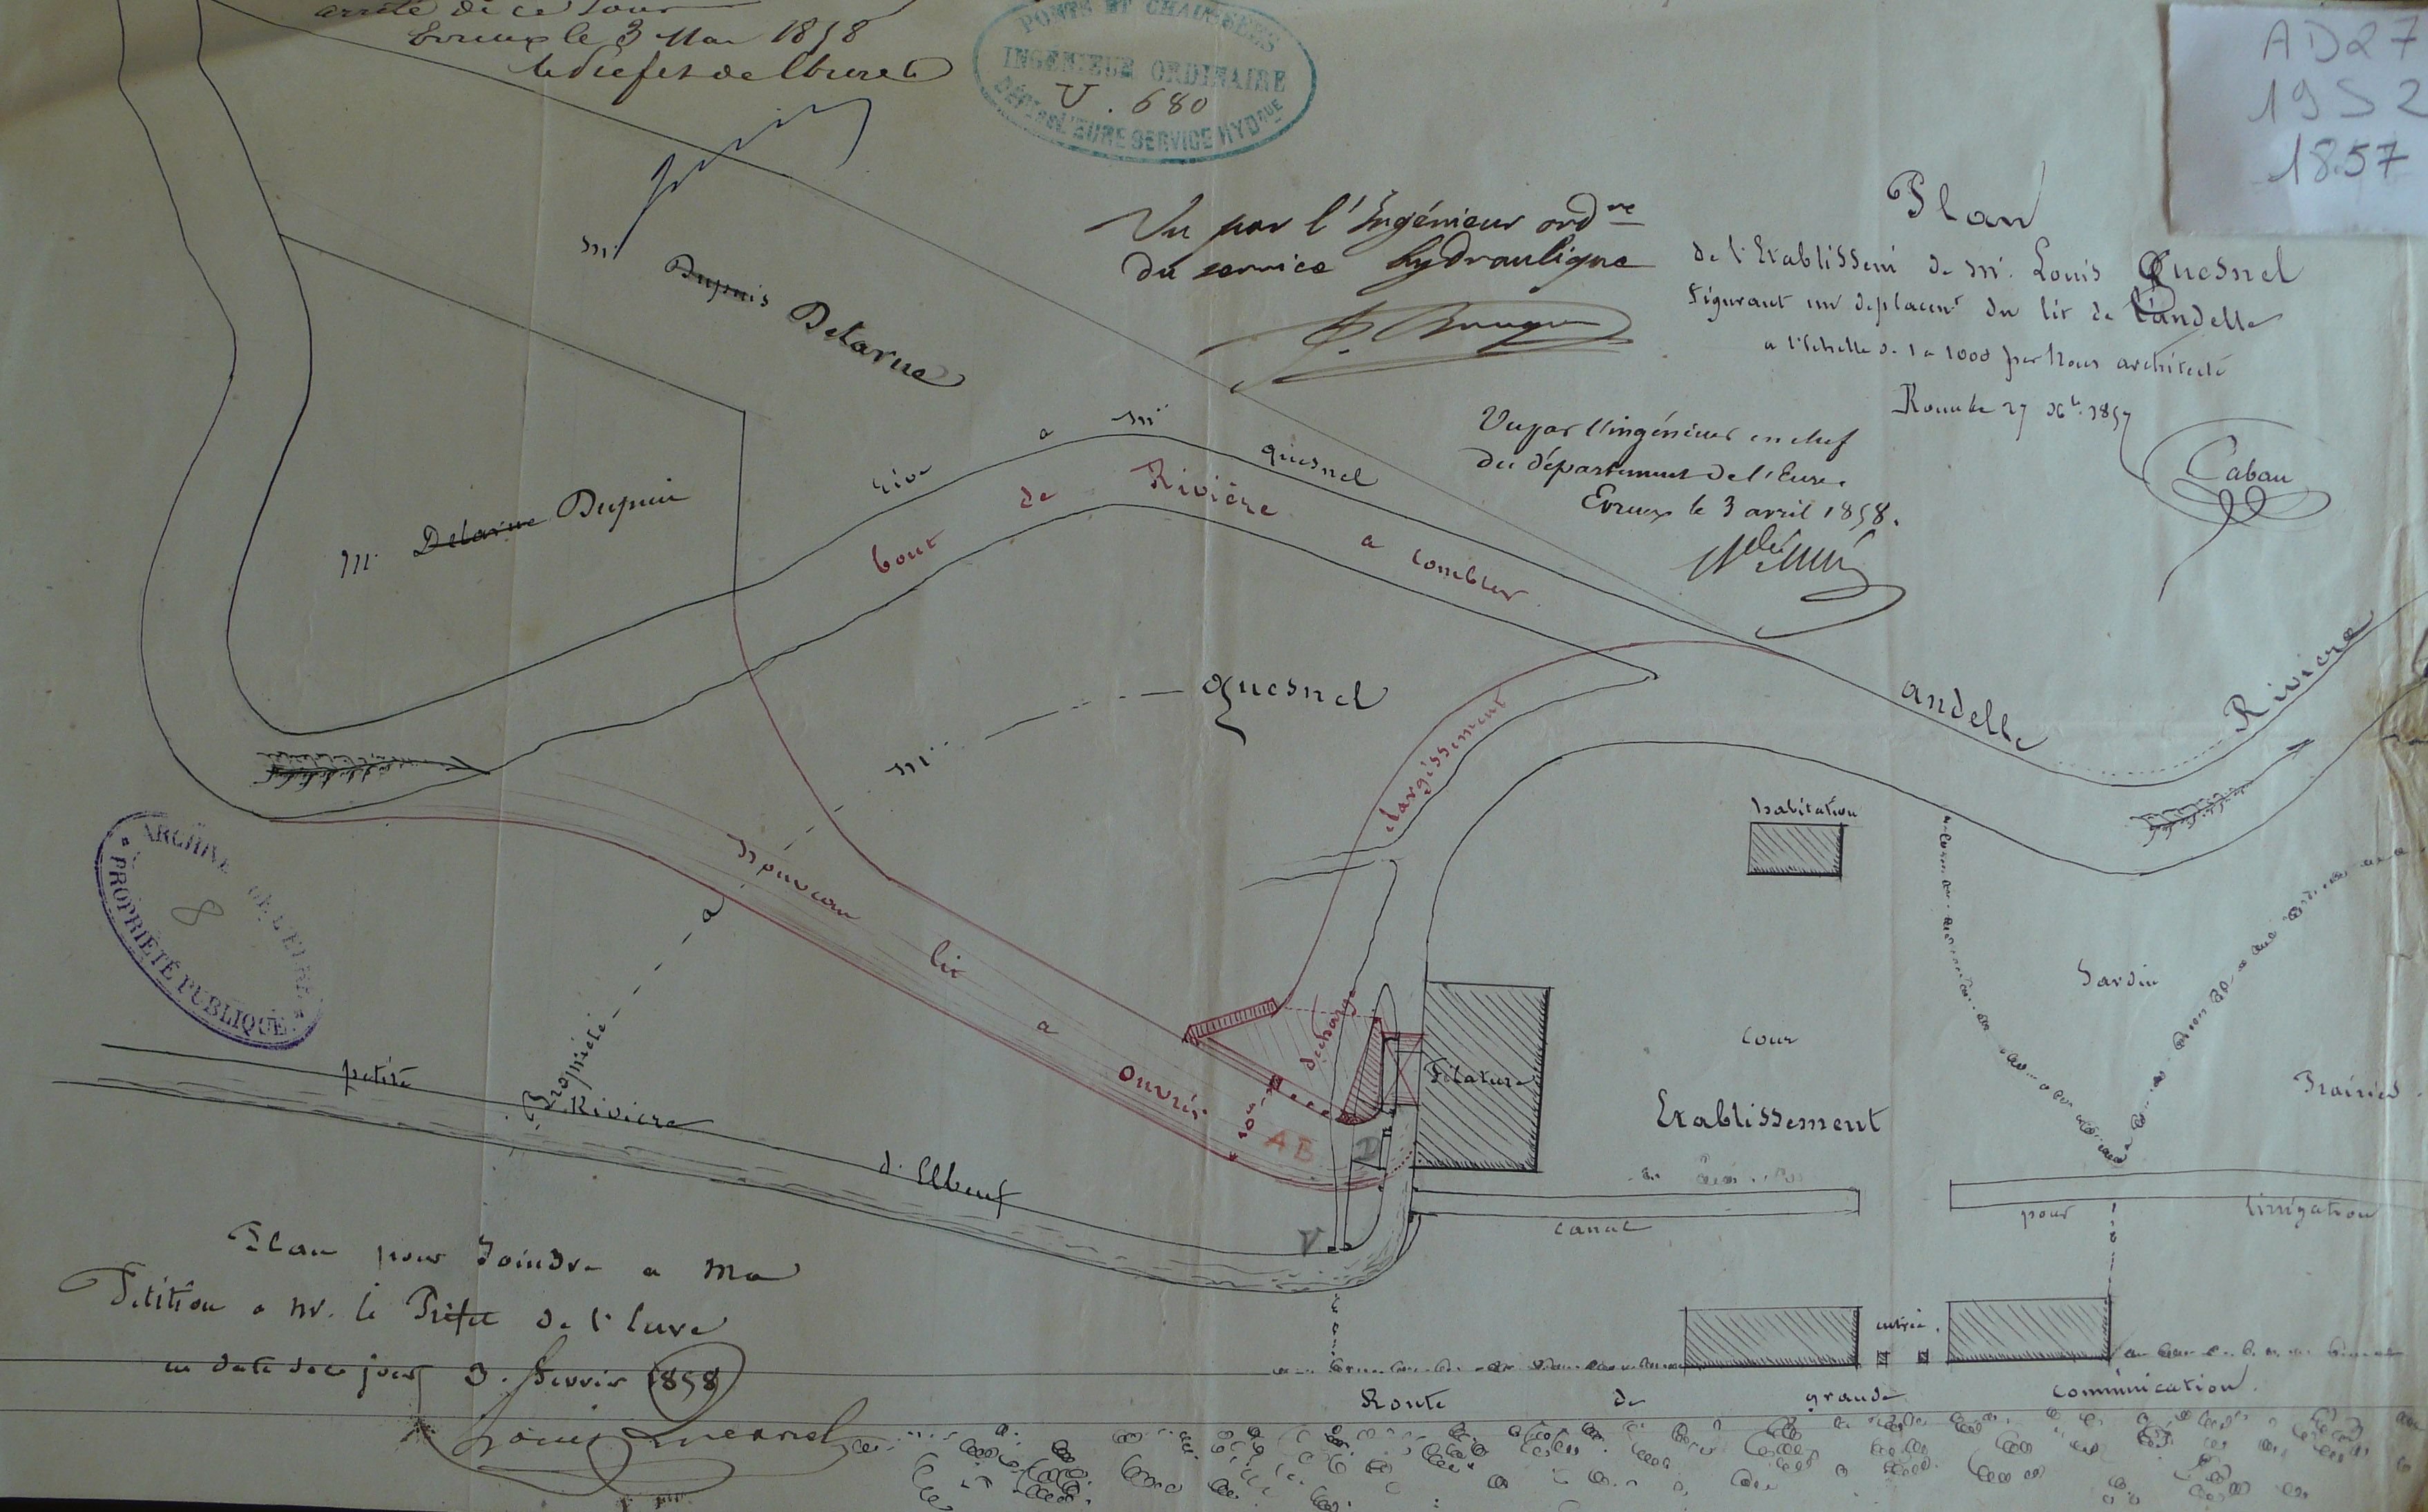 arrêté de ce jour
Evreux le 3 Mai 1858
le Préfet de l'Eure
PONTS ET CHAUSSÉES
INGÉNIEUR ORDINAIRE
U. 680
DÉPT DE L'EURE SERVICE HYDQUE
AD27
19S2
1857
Plan
de l'Etablissemt de Mr. Louis Quesnel
figurant un deplacemt du lit de l'andelle
a l'echelle de 1 a 1000 par Nous architecte
Rouen le 27 Xbre 1857
Cabau
Vu par l'Ingénieur ordre
du service hydraulique
Vu par l'ingénieur en chef
du département de l'Eure.
Evreux le 3 avril 1858.
Mr Dupuis Delarue
Mr Delarue Dupuis
rive a Mr quesnel
bout de Rivière a combler
Mr quesnel
andelle Rivière
elargissement
habitation
nouveau lit a ouvrir
décharge
10m50
A B
D
V
Filature
cour
Etablissement
Jardin
Prairies
canal
pour l'irrigation
ARCHIVES DE L'EURE
8
PROPRIÉTÉ PUBLIQUE
petite Rivière d'Elbeuf
Propriété a
Plan pour Joindre a ma
Pétition a Mr. le Préfet de l'Eure
en date de ce jour 3. fevrier 1858
Louis Quesnel
entrée.
Route de grande communication.